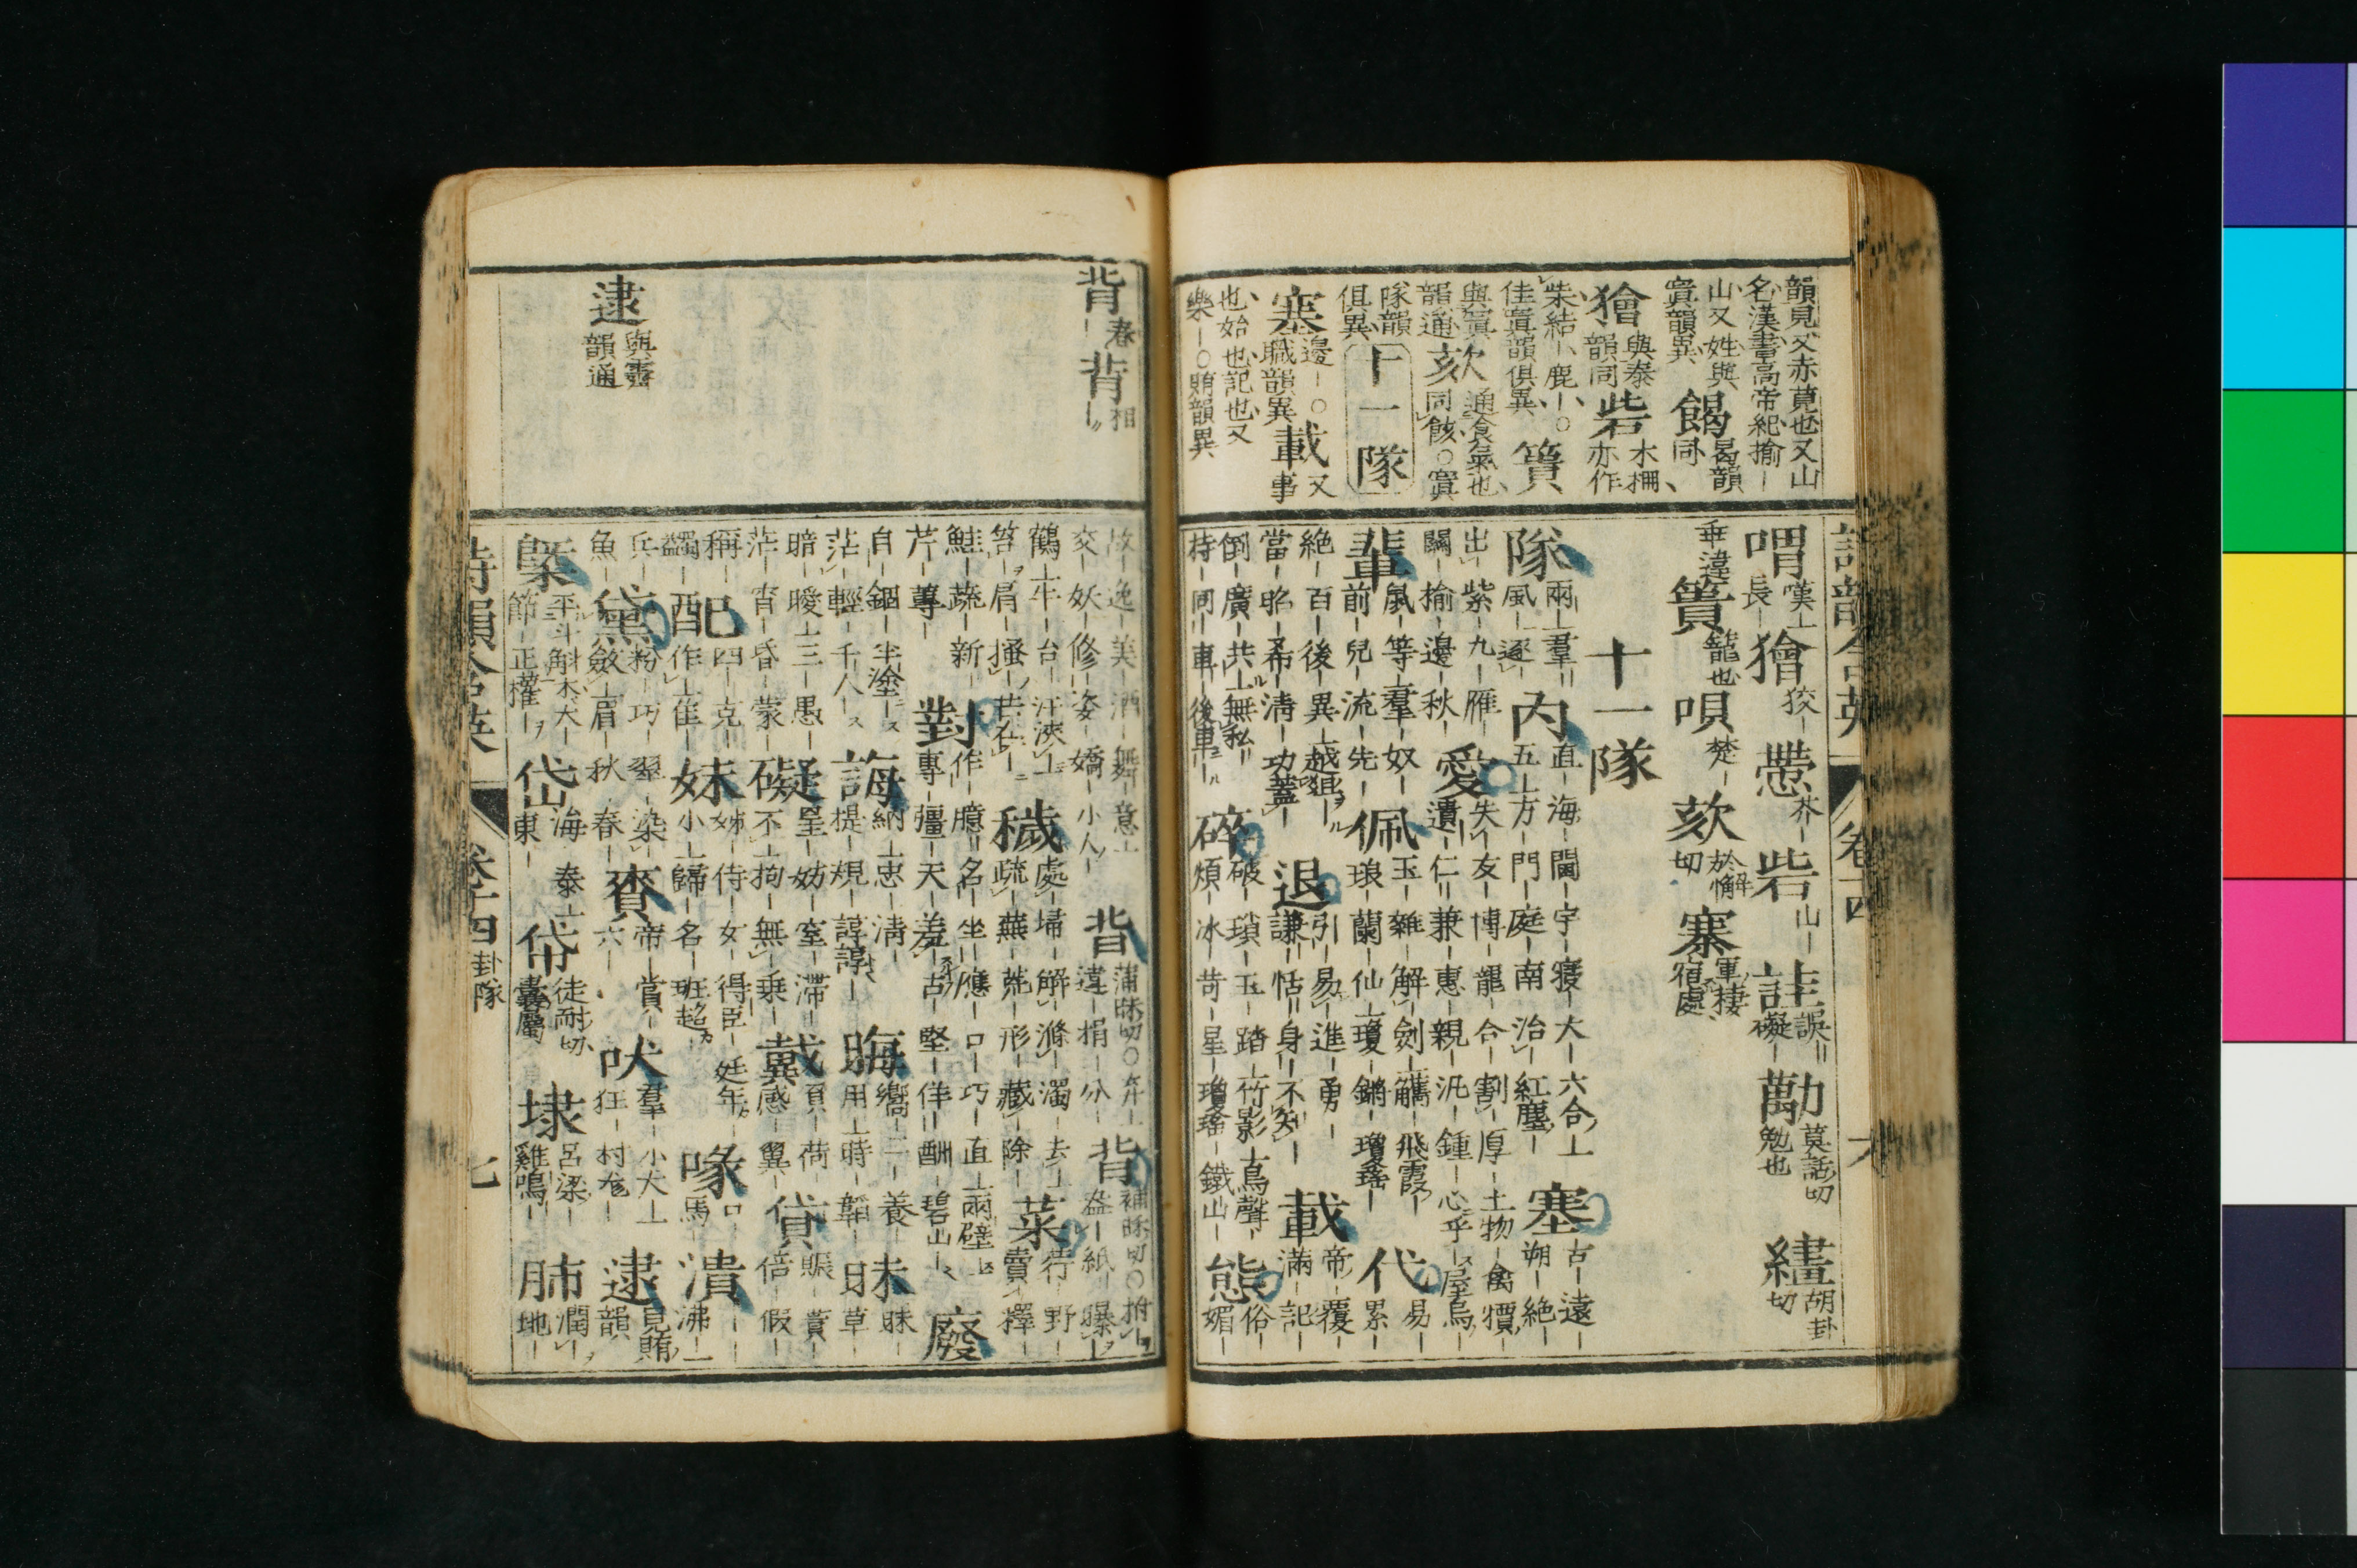 韻見又赤莧也又山
名漢書高帝紀揄｜
山又姓與
寘韻異
餲
曷韻
同
獪
與泰
韻同
砦
木柵
亦作
柴結鹿｜○
佳寘韻俱異
簣
與寘
韻通
欬
通食氣也
同餩○寘
隊韻
俱異
十一隊
塞
邊｜○
職韻異
載
又
事
也始也記也又
樂｜○賄韻異
喟
嘆｜
長｜
獪
狡｜
懘
芥｜
砦
山｜
註
誤〃
礙｜
勱
莫話切
勉也
繣
胡卦
切
垂違
簣
籠也
唄
梵｜
欬
於懈
切
寨
軍棲
宿處
十一隊
隊
雨｜羣〃
風｜逐｜
內
直｜海｜閫｜宇｜寢｜大｜六合｜
五｜方｜門｜庭｜南｜治｜紅塵｜
塞
古｜遠｜
朔｜絶｜
出｜紫｜九｜雁｜
關｜揄｜邊｜秋｜
愛
失｜友｜博｜寵｜合｜割｜厚｜土物｜禽犢
遺｜仁｜兼｜惠｜親｜汎｜鍾｜心乎｜屋烏｜
輩
鼠｜等｜羣｜奴｜
前｜兒｜流｜先｜
佩
玉｜雜｜解｜劍｜觿｜飛霞｜
琅｜蘭｜仙｜瓊｜鏘｜瓊瑤｜
代
易｜
累｜
絶｜百｜後｜異｜越｜
當｜昭｜希｜淸｜功蓋｜
退
引｜易｜進｜勇｜
謙｜恬〃身｜不知｜
載
帝｜覆｜
滿｜記｜
倒｜廣｜共｜無私｜
持｜同｜車｜後車｜
碎
破｜瑣｜玉｜踏｜竹影｜鳥聲｜
煩｜冰｜苛｜星｜瓊瑤｜鐵山｜
態
俗｜
媚｜
背
春
｜
背
相
｜
逮
與霽
韻通
故｜逸｜美｜酒｜舞｜意｜
交｜妖｜修｜姿｜嬌｜小人｜
背
蒲昧切○弃｜
違｜捐｜分｜
背
補昧切○拊｜
盎｜紙｜曝｜
鶴｜牛｜台｜汗浹｜
笞｜肩｜搔｜芒在｜
穢
處｜埽｜解｜滌｜濁｜去｜
疏｜蕪｜荒｜形｜藏｜除｜
菜
荇｜野｜
賣｜擇｜
鮭｜蔬｜新｜
芹｜蓴｜
對
作｜臆｜名｜坐｜應｜口｜巧｜直｜兩壁｜
專｜彊｜天｜羞｜古｜堅｜佯〃酬｜碧山｜
廢
自｜錮｜半塗｜
茫｜輕｜千人｜
誨
納｜忠｜淸｜
提｜規｜諄諄｜
晦
嚮｜三｜養｜
用｜時｜韜｜
昧
眛｜
草｜
暗｜曖｜三｜愚｜
茫｜宵｜昏｜蒙｜
礙
罣｜妨｜窒｜滯｜
不｜拘｜無｜乘｜
戴
頁｜荷｜
感｜翼｜
貸
賑｜蕡｜
倍｜假｜
稱｜
蠲｜
配
四｜克｜
作｜隹｜
妹
姊｜侍｜女｜得臣｜廷年｜
小｜歸｜名｜班超｜
喙
口｜
馬｜
潰
沸｜
兵｜
魚｜
黛
粉｜巧｜翠｜染｜
斂｜眉｜秋｜春｜
賚
帝｜賞｜
六｜
吠
羣｜小犬｜
狂｜村尨｜
逮
見賄
韻
槩
平斗斛木｜大｜
節｜正權｜
岱
海｜泰｜
東｜
帒
徒耐切
囊屬
埭
呂梁｜
雞鳴｜
肺
潤｜
地｜
詩韻含英
卷十四
卦隊
七